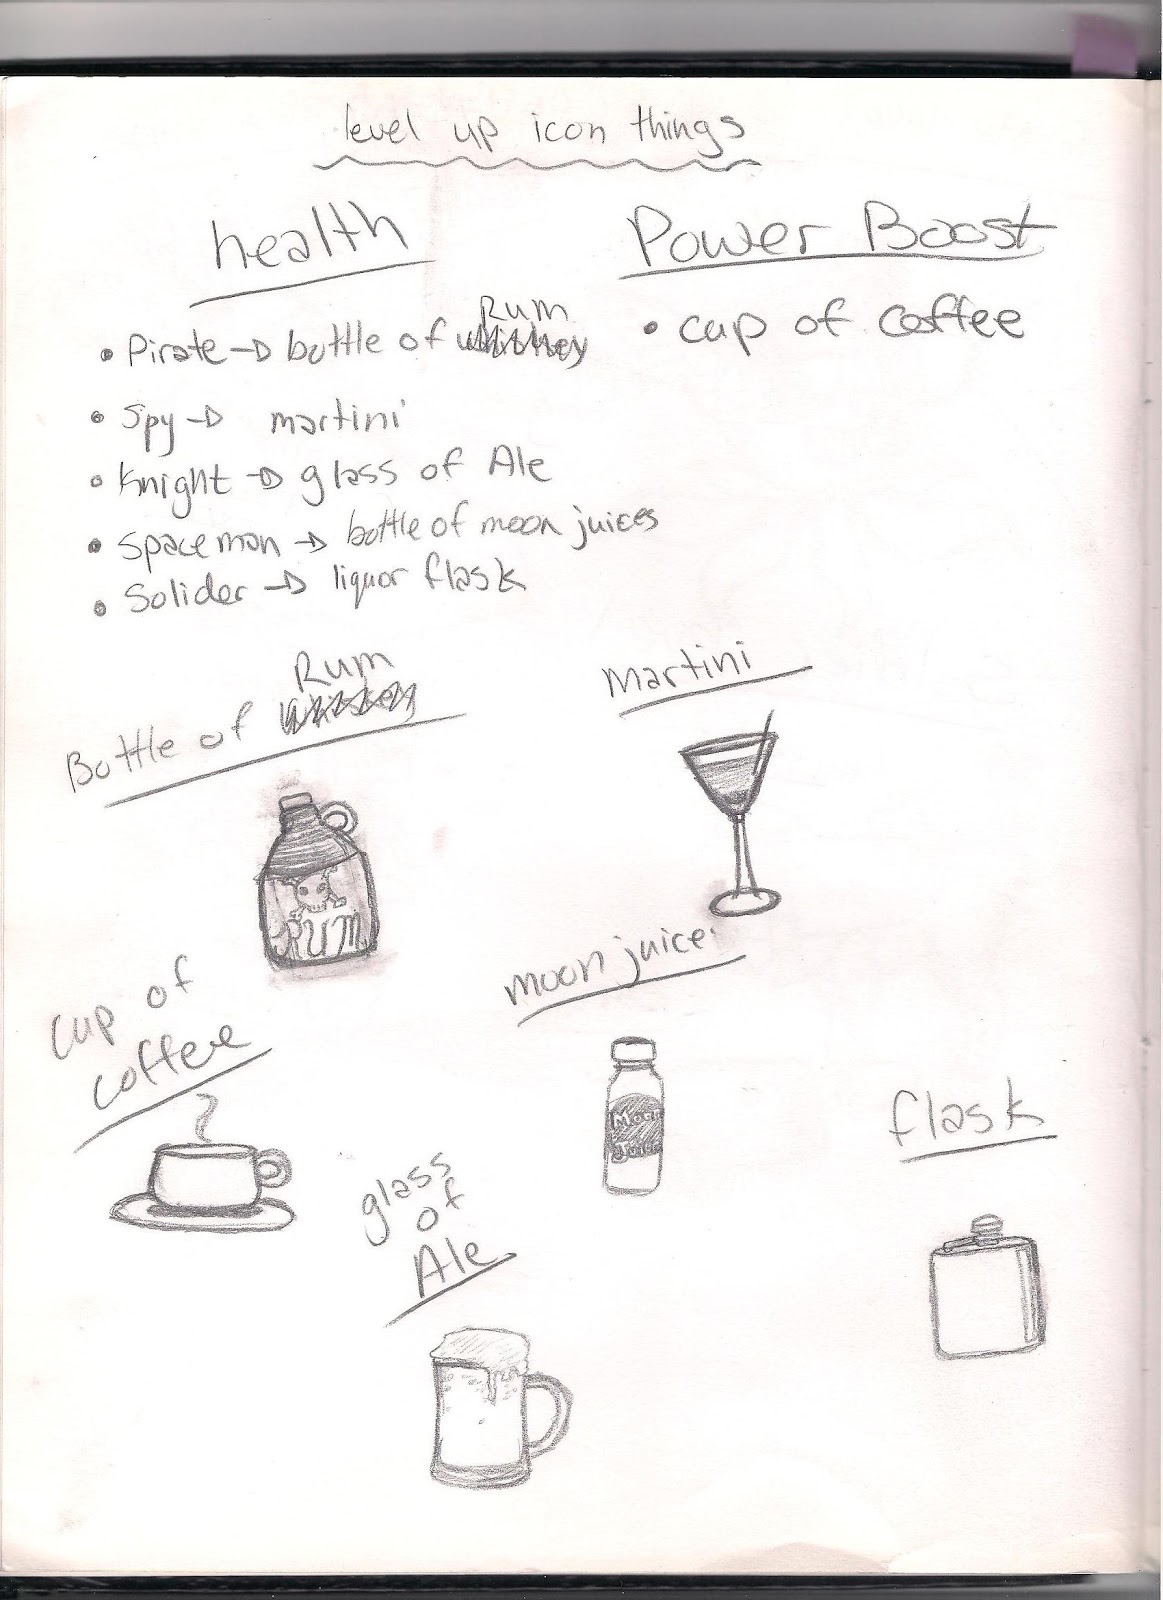 level up icon things
health
• Pirate → bottle of Rum
• Spy → martini
• Knight → glass of Ale
• Space man → bottle of moon juices
• Solider → liquor flask
Power Boost
• cup of coffee
Bottle of Rum
RUM
martini
cup of
coffee
moon juice
Moon
Juice
flask
glass
of
Ale